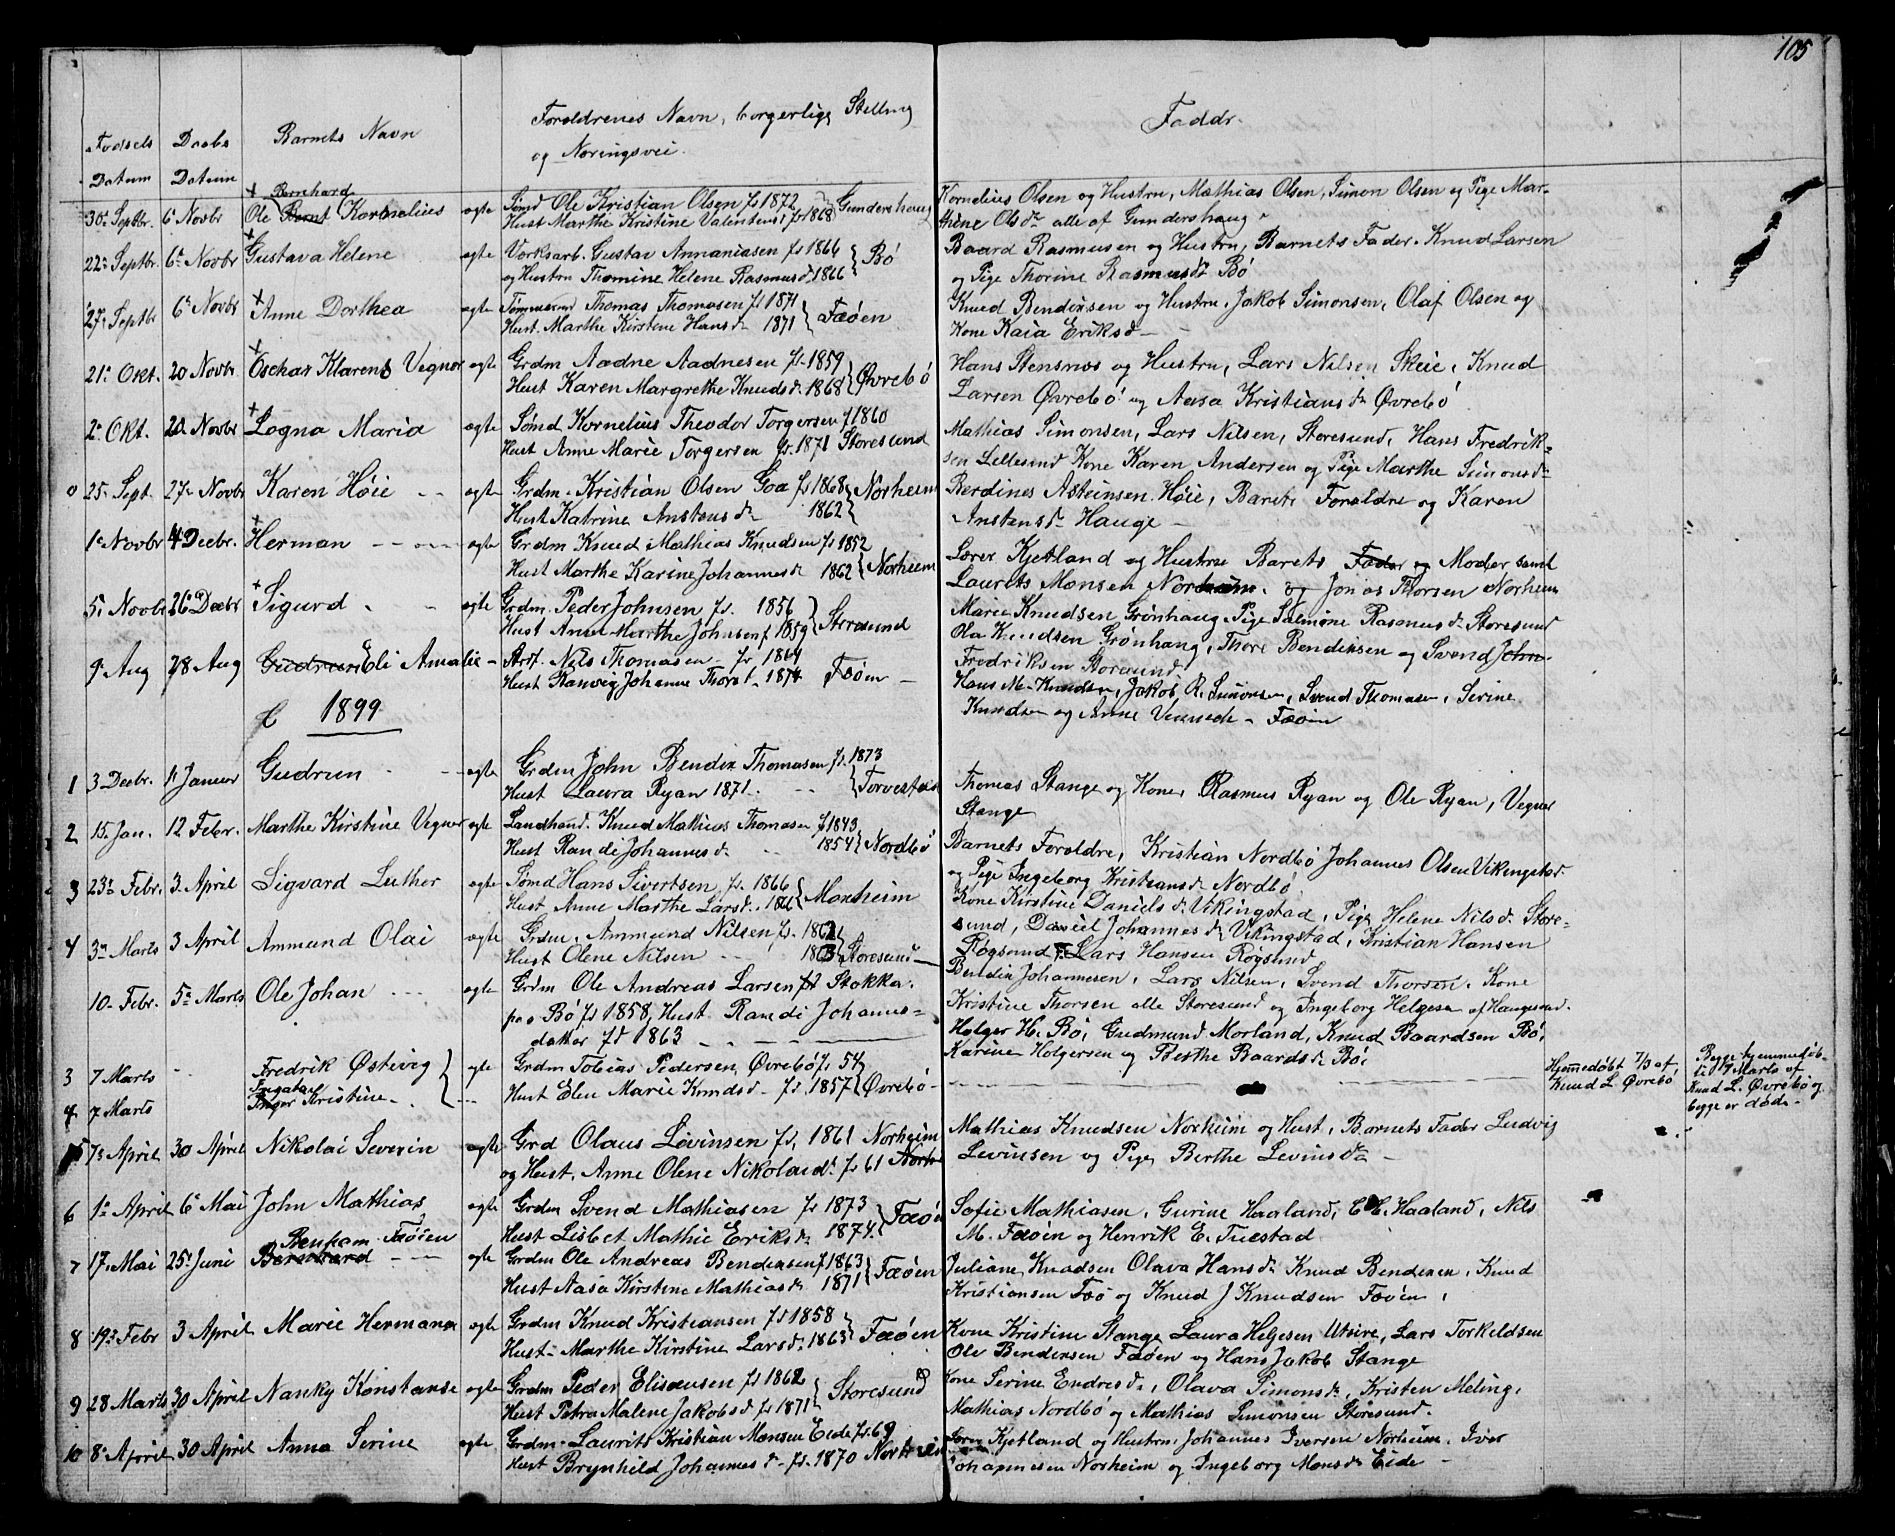 105
Fødsels Datum
Daabs Datum
Barnets Navn
Foraldrenes Navn, borgerlige Stelling
og Næringsvei.
Faddr.
30 Septbr. 6 Novbr Ole Bernt Bernhard Kornelius ægte Sømd Ole Kristian Olsen fs 1872 Gundershaug
Hust Marthe Kristine Valentens fs 1868
Kornelius Olsen og Hustru, Mathias Olsen, Simon Olsen og Pige Mar-
thine Olsdr alle af Gundershaug
22 Septbr 6 Novbr Gustava Helene ægte Vorksarb. Gustav Annaniasen fs 1864 Bø
og Hustru Thomine Helene Rasmusd. 1866
Baard Rasmusen og Hustru, Barnets Fader. Knud Larsen
og Pige Thorine Rasmusdr Bø
27 Septbr 6 Novbr Anne Dorthea ægte Tømmermd Thomas Thomasen fs 1871 Fæøen
Hust. Marthe Kirstene Hansd. 1871
Knud Bendixsen og Hustru. Jakob Simonsen, Olaf Olsen og
Kone Kaia Eriksd -
21 Okt. 20 Novbr Oschar Klarents Vegner ægte Grdm Aadne Aadnesen fs. 1859 Øvrebø
Hust Karen Margrethe Knudsd. 1868
Hans Stensnes og Hustru, Lars Nilsen Skeie, Knud
Larsen Øvrebø og Aasa Kristiansdr Øvrebø
2 Okt. 20 Novbr Logna Maria ægte Sømd Kornelius Theodor Torgersen f 1860
Hust Anne Marie Torgersen fs. 1871 Storesund
Mathias Simonsen, Lars Nilsen, Storesund, Hans Fredrik-
sen Lillesund Kone Karen Andersen og Pige Marthe Simonsd
25 Sept. 27 Novbr Karen Høie ægte Grdm. Kristian Olsen Goa fs 1868 Norheim
Hust Katrine Anstensd. 1862
Berdines Asteinsen Høie, Barets Foraldre og Karen
Anstensd. Hauge -
1 Novbr 4 Decbr. Herman ægte Grdm Knud Mathias Knudsen fs 1852
Hust Marthe Karine Johannesd. 1862 Norheim
Lærer Kjetland og Hustru Barets Fader og Moder samt
Laurits Monsen Norheim. og Jonas Thorsen Norheim
5 Novbr 26 Decbr Sigurd ægte Grdm. Peder Johnsen fs. 1856 Storesund
Hust Anne Marthe Johnsen f 1859
Marie Knudsen Grønhaug. Pige Salmone Rasmusd. Storesund
Ola Knudsen Grønhaug, Thore Bendiksen og Svend John-
Fredriksen Storesund
9 Aug 28 Aug Gudrun Eli Amalie - Strf. Nils Thomasen fs 1864
Hust Ranveig Johanne Thorsd. 1874 Fæøen -
Hans M. Knudsen, Jakob R. Simonsen, Svend Thomasen, Serine
Knudsen og Anne - Fæøen
1899
1 3 Decbr. 1 Januar Gudrun ægte Grdm John Bendix Thomasen fs. 1873 Torvestad
Hust Laura Ryan 1871.
Thomas Stange og Kone, Rasmus Ryan og Ole Ryan, Vegner
Stange
2 15 Jan. 12 Febr. Marthe Kirstine Vegner ægte Landhand. Knud Mathias Thomasen f 1843
Hust Randi Johannesd. 1854 Nordbø
Barnets Foraldre, Kristian Nordbø Johannes Olsen Vikingstad
og Pige Ingeborg Kristiansd. Nordbø
3 23 Febr. 3 April Sigvard Luther ægte Sømd Hans Sivertsen fs. 1866
Hust Anne Marthe Larsd. 1866
Kone Kirstine Danielsd. Vikingstad, Pige Helene Nilsd. Store-
sund, Daniel Johannesd. Vikingstad, Kristian Hansen
Røgsund, Lars Hansen Røgsund
4 3 Marts 3 April Ammund Olai ægte Grdm. Ammund Nilsen fs. 1862
Hust Olene Nilsen 1863 Storesund
Bendix Johannesen, Lars Nilsen, Svend Thorsen, Kone
Kristine Thorsen alle Storesund og Ingeborg Helgesen af Haugesund.
10 Febr. 5 Marts Ole Johan ægte Grdm Ole Andreas Larsen fd Stokka.
paa Bø fd 1858, Hust Randi Johannes-
datter fd 1863
Holger H. Bø, Gudmund Morland, Knud Baardsen Bø,
Karine Holgersen og Berthe Baardsd. Bø.
3 7 Marts Fredrik Østivig ægte Grdm Tobias Pedersen, Øvrebø fs 54
4 7 Marts Inger Kristine Hust Elen Marie Knudsd. fs 1857 Øvrebø
Hjemedøbt 7/3 af
Knud L. Øvrebø
Begge hjemmedøb-
te 7 Marts af
Knud L. Øvrebø og
begge er døde -
5 7 April 30 April Nikolai Severin ægte Grd Olaus Løvinsen fs. 1861 Norheim
og Hust. Anne Olene Nikolaid. fs 61
Mathias Knudsen Norheim og Hust, Barnets Fader Ludvig
Levinsen og Pige Berthe Levinsdr -
6 1 April 6 Mai John Mathias ægte Grdm Svend Mathiasen fs 1873 Fæøen
Hust Lisbet Mathie Eriksd. 1874.
Sofie Mathiasen, Gurine Haaland, E. Haaland, Nils
M. Fæøen og Henrik E. Tuestad
7 17 Mai 25 Juni Bernhard Fæøen ægte Grdm Ole Andreas Bendixsen f 1863 Fæøen
Hust Aasa Kirstine Mathiasd. 1871
Juliane Knudsen Olava Hansd. Knud Bendixen, Knud
Kristiansen Fæø og Knud J Knudsen Fæøen,
8 19 Febr 3 April Marie Hermana ægte Grdm Knud Kristiansen fs 1858 Fæøen
Hust - Marthe Kirstine Larsd. 1863
Kone Kristine Stange Laura Helgesen Utsire, Lars Torkeldsen
Ole Bendixsen Fæøen og Hans Jakob Stange
9 28 Marts 30 April Nanky Konstanse ægte Grdm Peder Elisæusen fs 1862 Storesund
Hust Petra Malene Jakobsd fs 1871
Kone Serine Endresd., Olava Simonsd., Kristen Meling,
Mathias Nordbø og Mathias Simonsen Storesund.
10 8 April 30 April Anna Serine ægte Grdm. Laurits Kristian Monsen Eide fs. 69
Hust Brynhild Johannesd. fs. 1870 Norheim
Lærer Kjetland og Hustru, Johannes Iversen Norheim. Iver
Johannesen Norheim og Ingeborg Monsdr Eide -